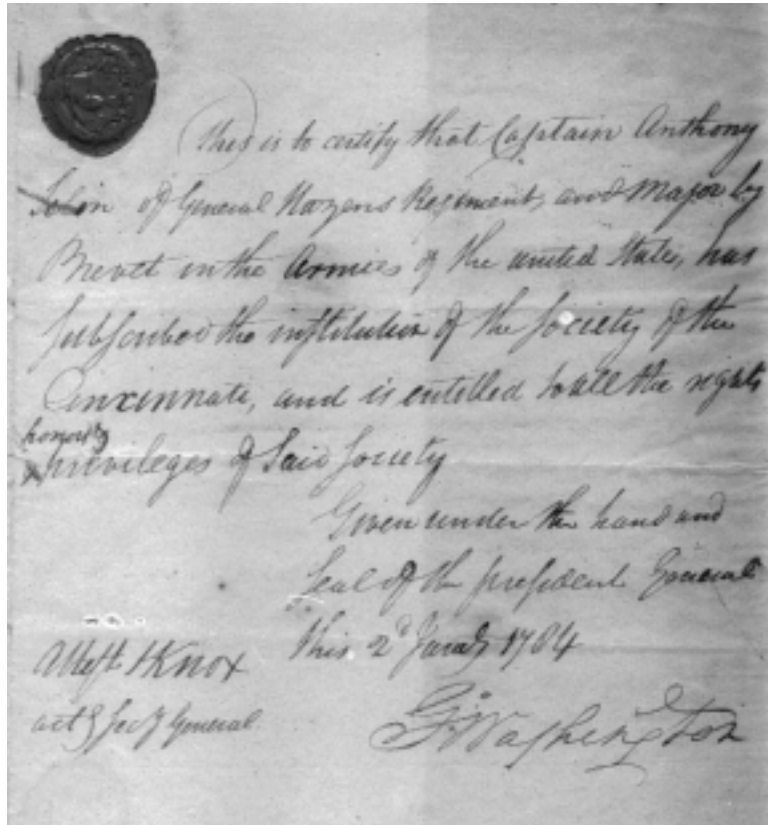 This is to certify that Captain Anthony
Selin of General Hazens Regiment, and Major by
Brevet in the Armies of the united States, has
Subscribed the institution of the Society of the
Cincinnati, and is entitled to all the rights
honors &
privileges of Said Society
Given under the hand and
Seal of the president General
this 2d Jany 1784
Attest HKnox
act'g Secy General
G:Washington